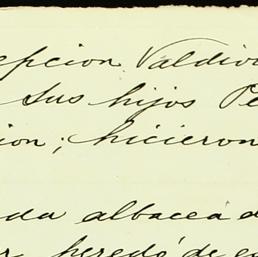 epcion Valdiv
sus hijos Pe
ion; hicieron
da albacea d
heredó de